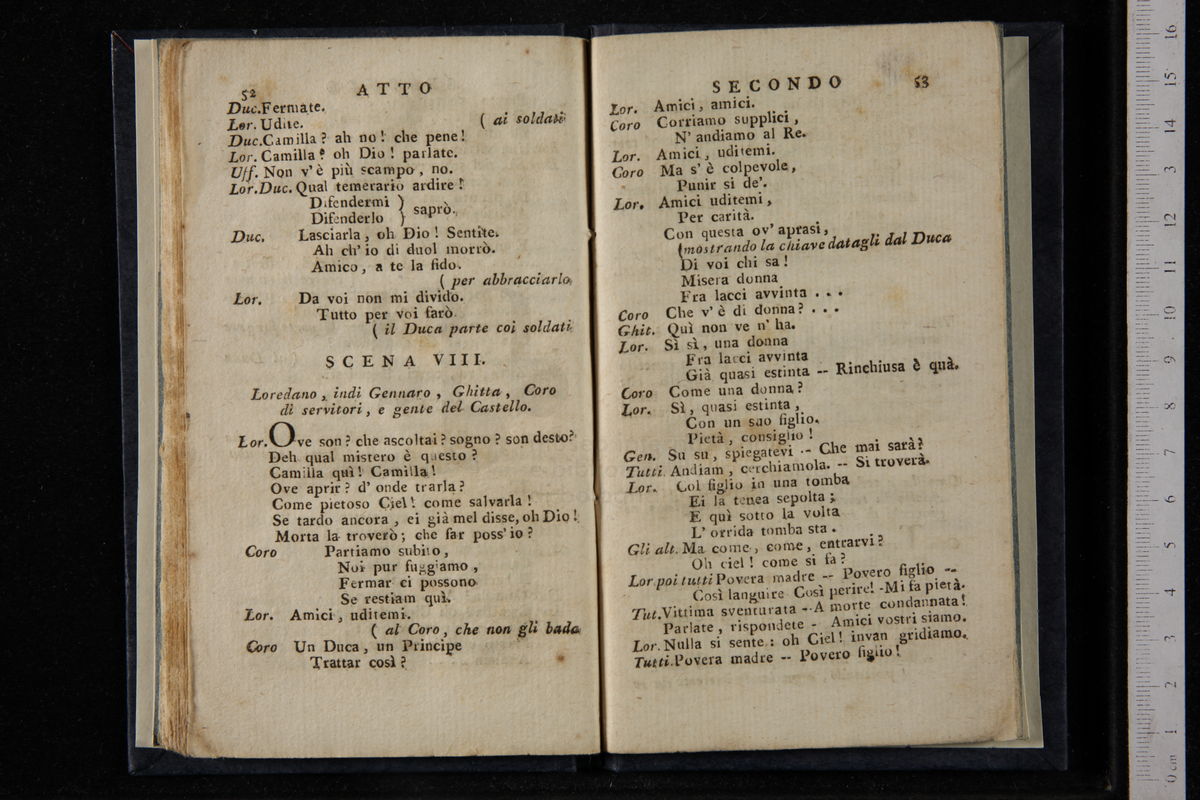 52
ATTO
Duc. Fermate.
Lor. Udite. ( ai soldati
Duc. Camilla? ah no! che pene!
Lor. Camilla? oh Dio! parlate.
Uff. Non v'è più scampo, no.
Lor. Duc. Qual temerario ardire!
Difendermi )
Difenderlo ) saprò.
Duc. Lasciarla, oh Dio! Sentite.
Ah ch' io di duol morrò.
Amico, a te la fido.
( per abbracciarlo.
Lor. Da voi non mi divido.
Tutto per voi farò
( il Duca parte coi soldati
SCENA VIII.
Loredano, indi Gennaro, Ghitta, Coro
di servitori, e gente del Castello.
Lor. Ove son? che ascoltai? sogno? son desto?
Deh qual mistero è questo?
Camilla quì! Camilla!
Ove aprir? d' onde trarla?
Come pietoso Ciel! come salvarla!
Se tardo ancora, ei già mel disse, oh Dio!
Morta la troverò; che far poss' io?
Coro Partiamo subito,
Noi pur fuggiamo,
Fermar ci possono
Se restiam quì.
Lor. Amici, uditemi.
( al Coro, che non gli bada
Coro Un Duca, un Principe
Trattar così?
SECONDO
53
Lor. Amici, amici.
Coro Corriamo supplici,
N' andiamo al Re.
Lor. Amici, uditemi.
Coro Ma s' è colpevole,
Punir si de'.
Lor. Amici uditemi,
Per carità.
Con questa ov' aprasi,
(mostrando la chiave datagli dal Duca
Di voi chi sa!
Misera donna
Fra lacci avvinta . . .
Coro Che v' è di donna? . . .
Ghit. Quì non ve n' ha.
Lor. Sì sì, una donna
Fra lacci avvinta
Già quasi estinta -- Rinchiusa è quà.
Coro Come una donna?
Lor. Sì, quasi estinta,
Con un suo figlio.
Pietà, consiglio!
Gen. Su su, spiegatevi -- Che mai sarà?
Tutti Andiam, cerchiamola. -- Si troverà.
Lor. Col figlio in una tomba
Ei la tenea sepolta;
E quì sotto la volta
L' orrida tomba sta.
Gli alt. Ma come, come, entrarvi?
Oh ciel! come si fa?
Lor. poi tutti Povera madre -- Povero figlio --
Così languire Così perire! - Mi fa pietà.
Tut. Vittima sventurata -- A morte condannata!
Parlate, rispondete - Amici vostri siamo.
Lor. Nulla si sente: oh Ciel! invan gridiamo.
Tutti. Povera madre -- Povero figlio!
0 cm 1 2 3 4 5 6 7 8 9 10 11 12 13 14 15 16